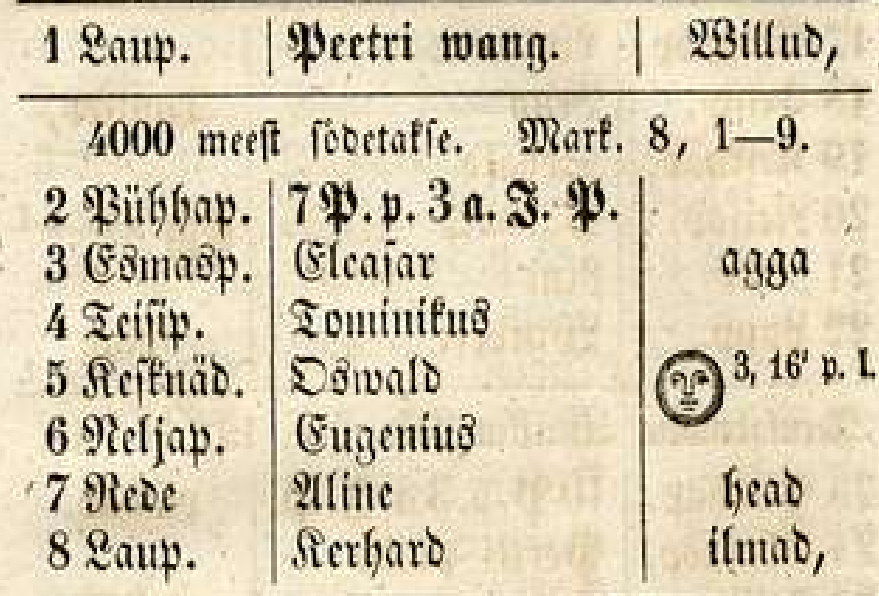 1 Laup. | Peetri wang. | Willud,
4000 meest södetakse. Mark. 8, 1—9.
2 Pühhap. | 7 P. p. 3 a. J. P. |
3 Esmasp. | Eleasar | agga
4 Teisip. | Tominikus |
5 Kesknäd. | Oswald | 3, 16' p. l.
6 Neljap. | Eugenius |
7 Rede | Aline | head
8 Laup. | Kerhard | ilmad,